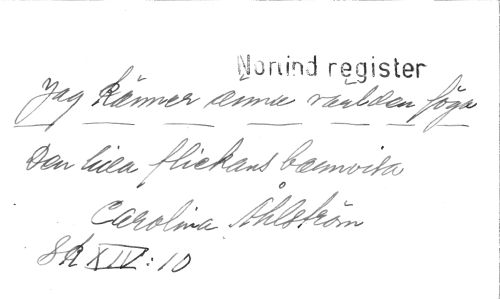 Norlind register
Jag känner ännu världen föga
Den lilla flickans barnvisa
Carolina Åhlström
SK XIV:10